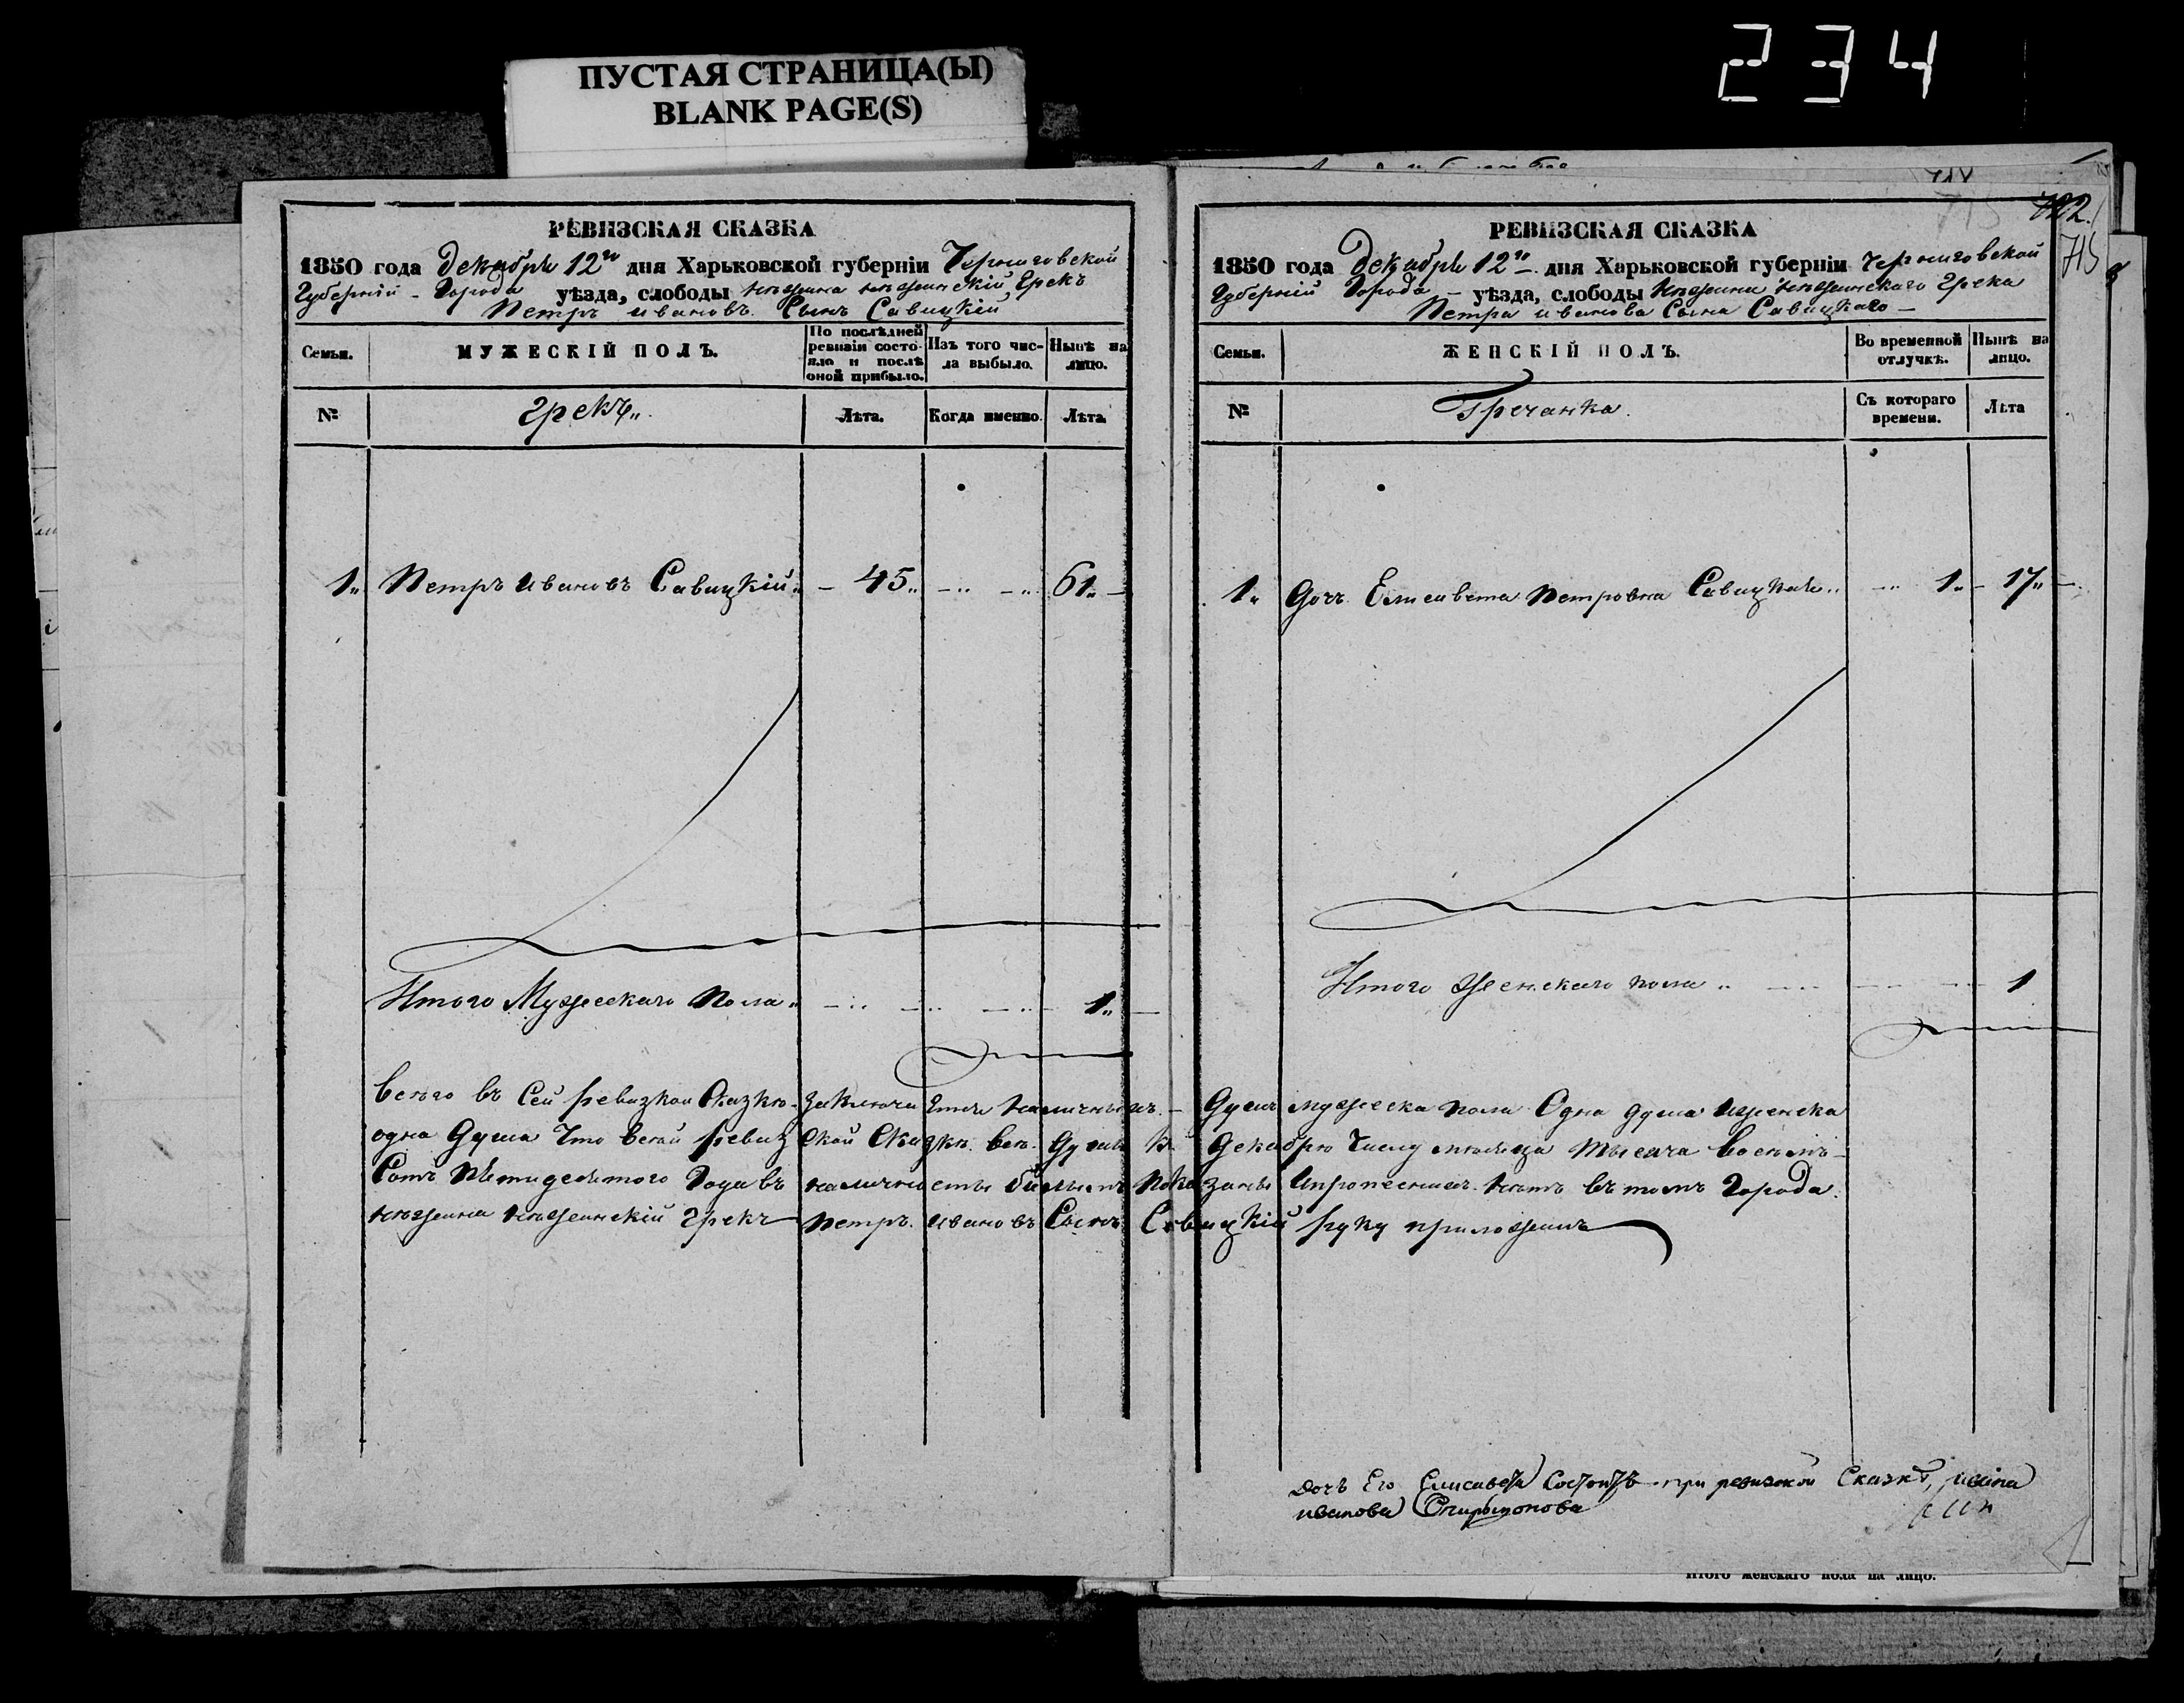 ПУСТАЯ СТРАНИЦА(Ы)
BLANK PAGE(S)
234
РЕВИЗСКАЯ СКАЗКА
1850 года Декабря 12го дня Харьковской губерніи Черниговской
Губерніи - Города уѣзда, слободы Нѣжина нѣжинскій Грекъ
Петръ ивановъ Сынъ Савицкій
Семьи.
МУЖЕСКІЙ ПОЛЪ.
По послѣдней ревизіи состояло и послѣ оной прибыло.
Изъ того числа выбыло.
Нынѣ на лицо.
№
Грекъ„
Лѣта.
Когда именно.
Лѣта.
1„ Петръ Ивановъ Савицкій„ - 45„ 61„
Итого Мужескаго Пола„ 1„
РЕВИЗСКАЯ СКАЗКА
722.
715
1850 года Декабря 12„ дня Харьковской губерніи Черниговской
Губерніи Города - уѣзда, слободы Нѣжина Нѣжинскаго Грека
Петра иванова Сына Савицкаго -
Семьи.
ЖЕНСКІЙ ПОЛЪ.
Во временной отлучкѣ.
Нынѣ на лицо.
№
Гречанка.
Съ котораго времени.
Лѣта
1„ Дочь Елисавета Петровна Савицкая„ 1„ - 17„
Итого Женскаго пола„ 1
всего въ Сей ревизкой Сказкѣ заключаится наличныхъ - Душъ мужеска пола Одна душа ижонска
одна Душа Что всѣй ревизской Сказкѣ всѣ Души къ Декабрю Числу мѣсяца тысяча Восѣмъ-
Сотъ Пѣтидесятого Года въ наличности бывшимъ Показаны Ипрописнихъ нѣтъ въ томъ Города
нѣжина нѣжинскій Грекъ Петръ ивановъ Сынъ Савицкій руку приложилъ
дочь Его Елисавета Состоитъ при ревизской Сказкѣ,
иванова Спиридонова
Итого женскаго пола на лицо.